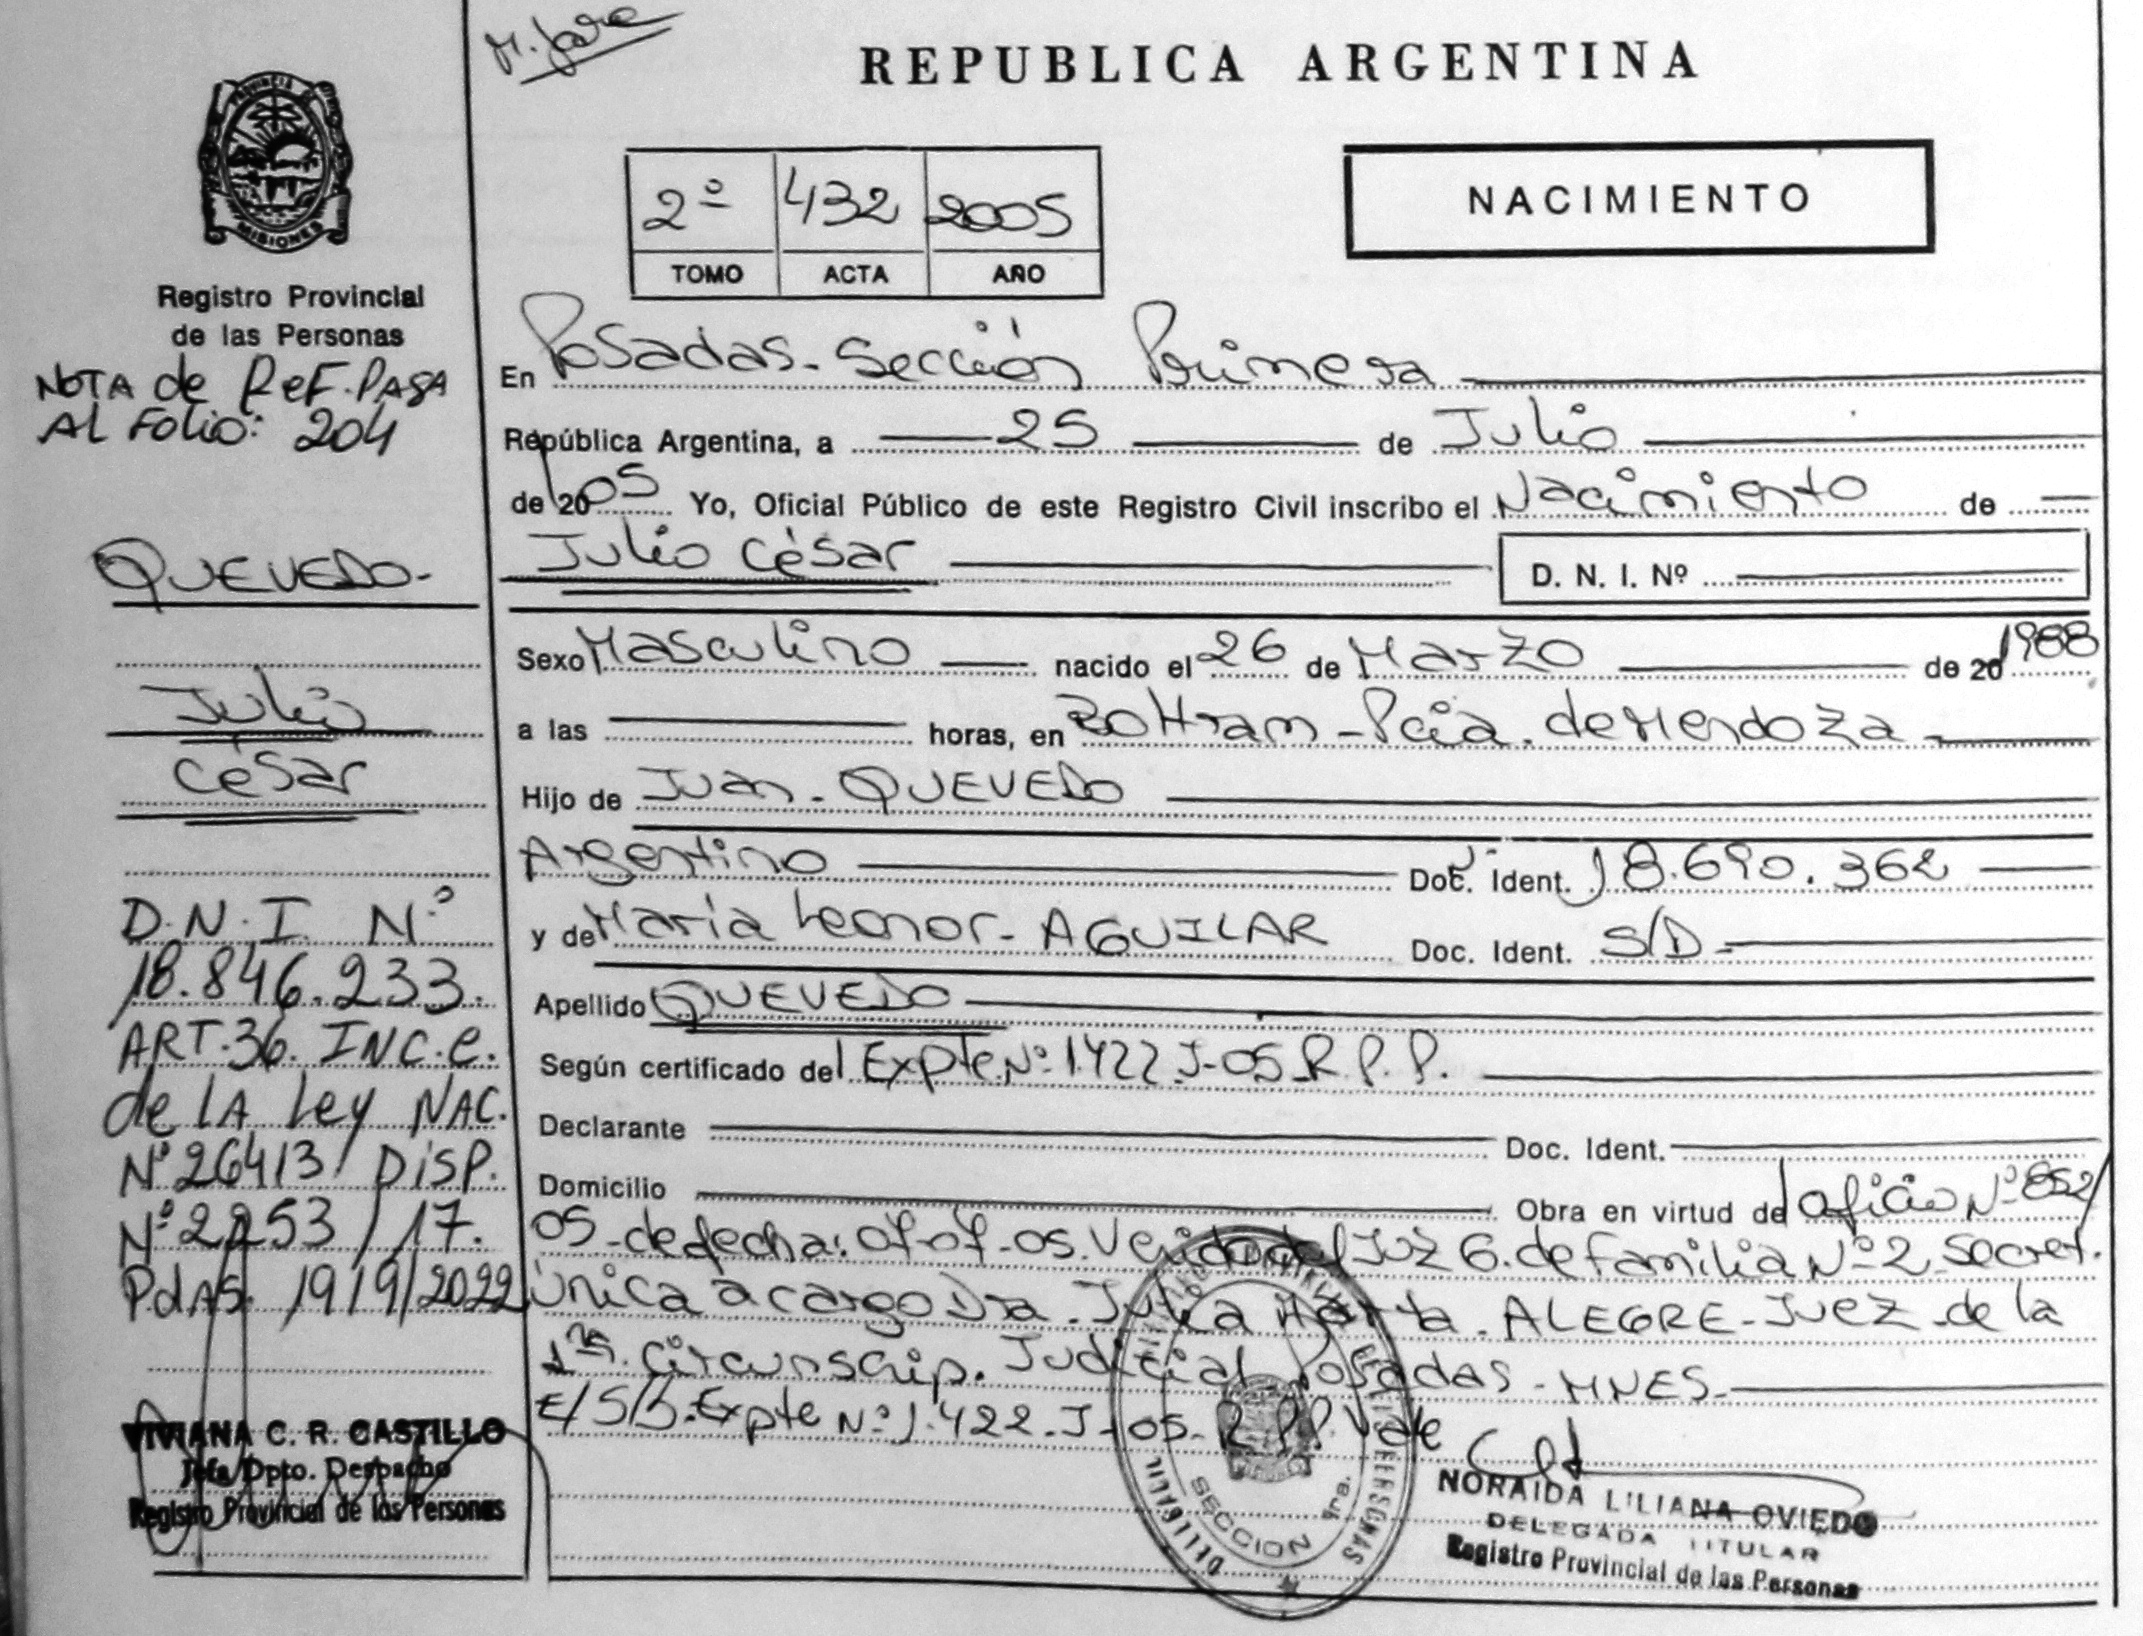 M. Jara
REPUBLICA ARGENTINA
PROVINCIA DE
MISIONES
Registro Provincial
de las Personas
NOTA de ReF. PASA
Al Folio: 204
QUEVEDO-
Julio
César
D.N.I. Nº
18.846.233.
ART.36. INC.C.
de LA Ley NAC.
Nº 26413/ DiSP.
Nº 2253/17.
PdAS. 19/9/2022
VIVIANA C. R. CASTILLO
Jefa Dpto. Despacho
Registro Provincial de las Personas
2º 432 2005
TOMO ACTA AÑO
NACIMIENTO
En Posadas - Sección Primera
República Argentina, a 25 de Julio
de 20 05 Yo, Oficial Público de este Registro Civil inscribo el Nacimiento de
Julio César D. N. I. Nº
Sexo Masculino nacido el 26 de Marzo de 20 1988
a las horas, en Boltram - Pcia. de Mendoza
Hijo de Juan - QUEVEDO
Argentino Doc. Ident. 18.690.362
y de María Leonor - AGUILAR Doc. Ident. S/D -
Apellido QUEVEDO
Según certificado del Expte Nº 1.422 J-05 R.P.P.
Declarante Doc. Ident.
Domicilio Obra en virtud del oficio Nº 852/
05 - de fecha: Venido del Juz 6. de Familia Nº 2 Secret.
Única a cargo Dra. Julia Marta. ALEGRE - Juez de la
1ra. Circunscrip. Judicial Posadas - MNES -
E/S/B. Expte Nº 1.422 - J - 05 - R.P.P. Vale
SECCION 1ra.
NORAIDA LILIANA OVIEDO
DELEGADA TITULAR
Registro Provincial de las Personas